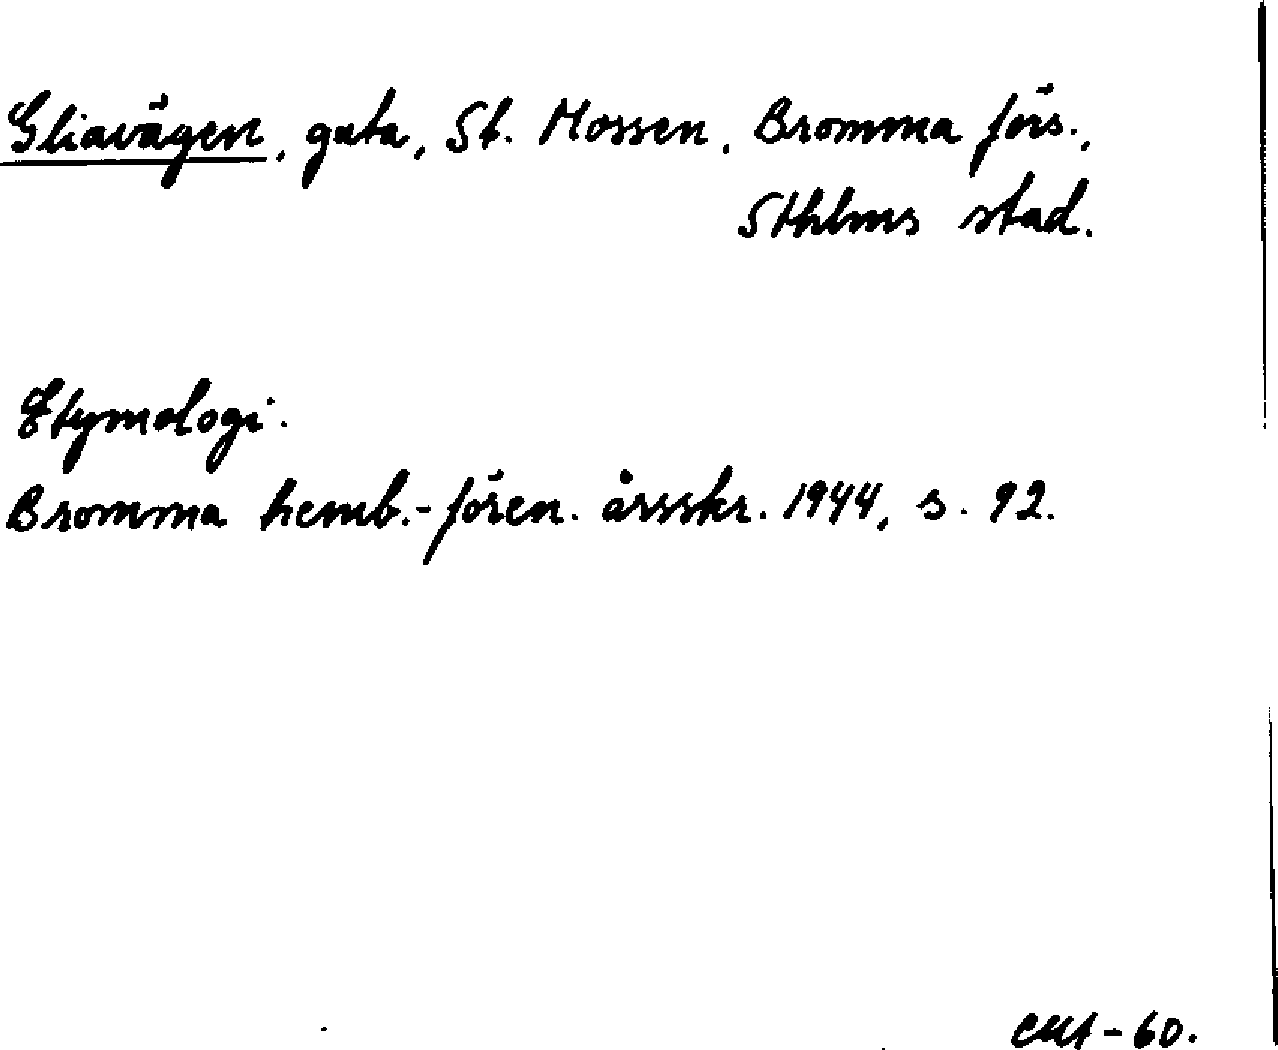 Gliavägen, gata, St. Mossen, Bromma förs.,
Sthlms stad.
Etymologi.
Bromma hemb.-fören. årsskr. 1944, s. 92.
-60.